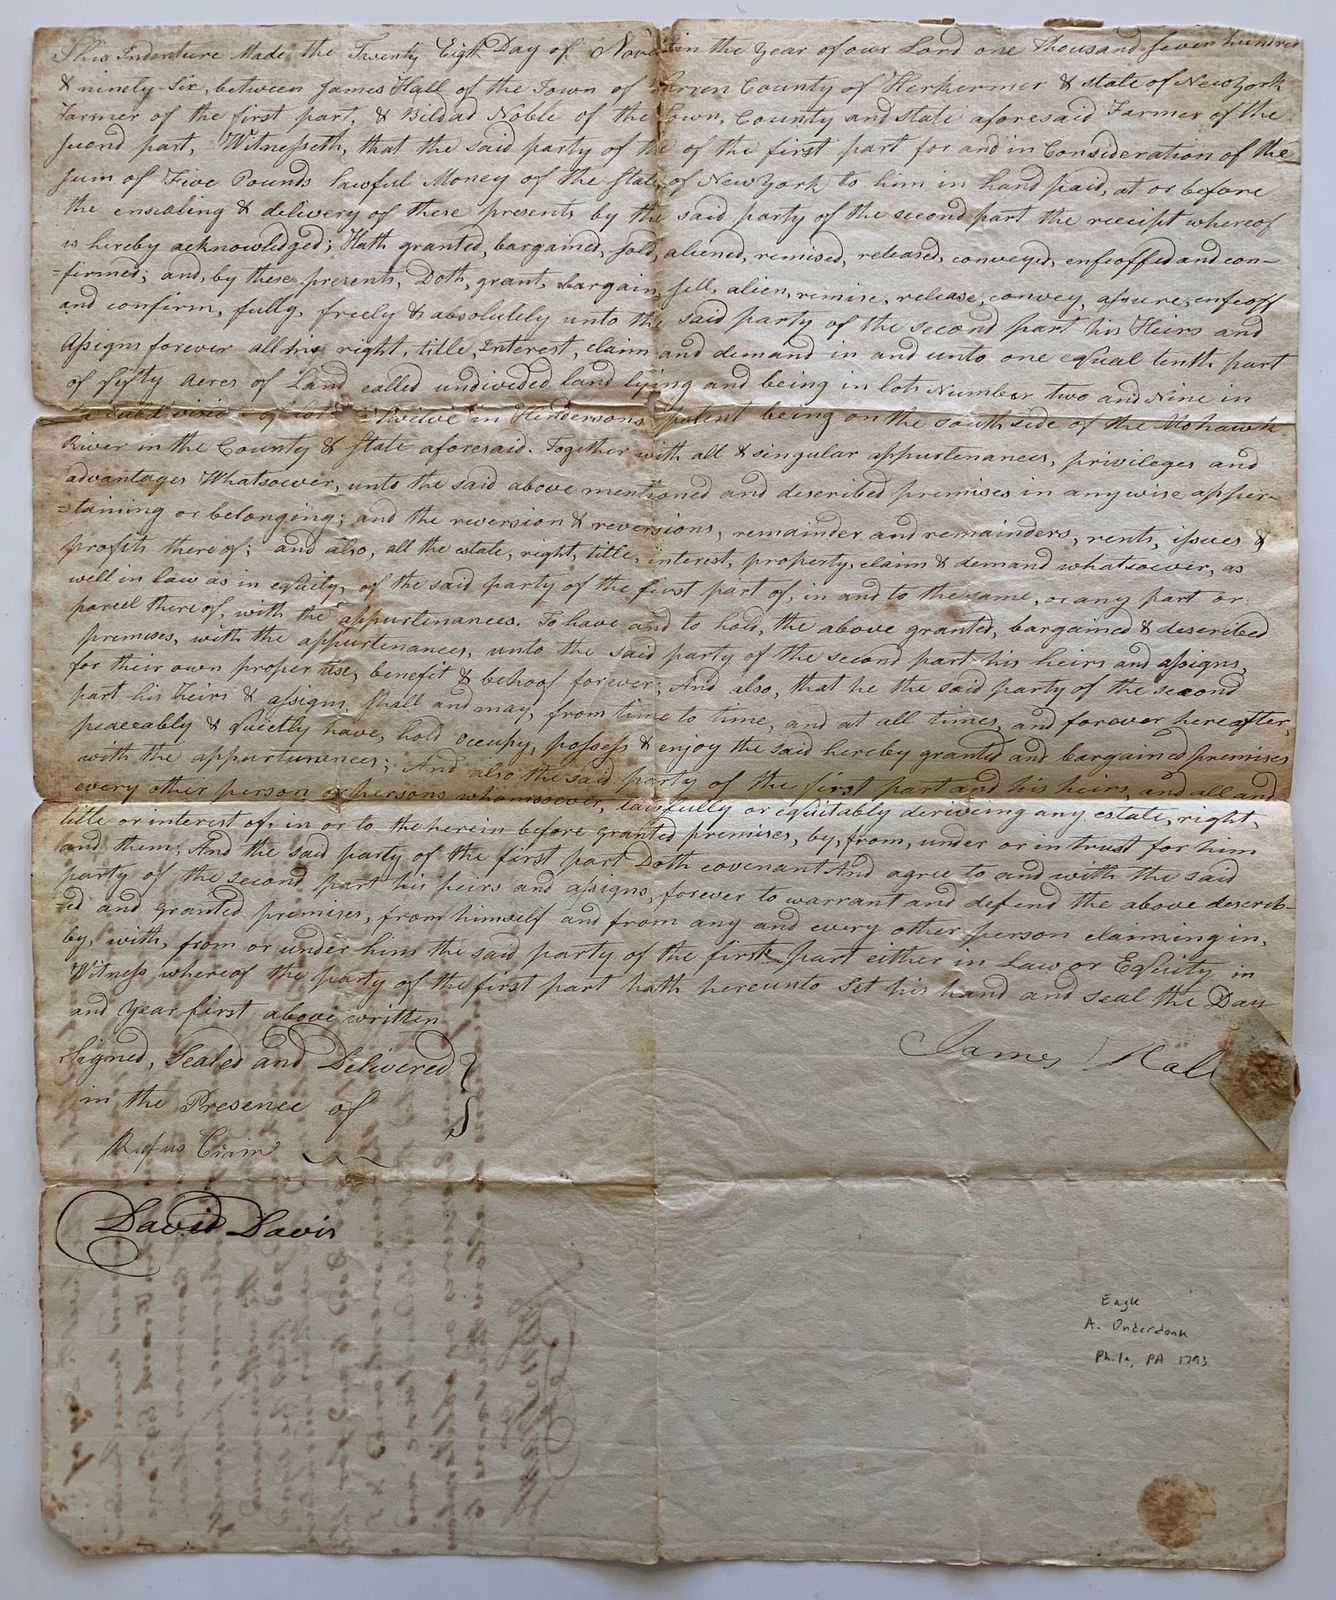 This Indenture Made the Twenty Eigh Day of Nov in the Year of our Lord one thousand seven hundred
& ninety-Six, between James Hall of the Town of Warren County of Herkermer & state of New York
Farmer of the first part, & Bildad Noble of the Town, County and state aforesaid Farmer of the
second part, Witnesseth, that the said party of the of the first part for and in Consideration of the
sum of Five Pounds lawful Money of the State of New York to him in hand paid, at or before
the ensealing & delivery of these presents by the said party of the second part the receipt whereof
is hereby acknowledged; Hath granted, bargained, sold, aliened, remised, released, conveyed, enfeoffed and con-
=firmed; and, by these presents, Doth, grant, bargain, sell, alien, remise, release, convey, assure, enfeoff
and confirm, fully, freely & absolutely unto the said party of the second part his Heirs and
Assigns forever all his right, title, Interest, claim and demand in and unto one equal tenth part
of fifty acres of Land called undivided land lying and being in lots Number two and Nine in
a Twelve in Hendersons patent being on the south side of the Mohawk
River in the County & State aforesaid. Together with all & singular appurtenances, privileges and
advantages Whatsoever, unto the said above mentioned and described premises in anywise apper-
=taining or belonging; and the reversion & reversions, remainder and remainders, rents, issues &
profits thereof; and also, all the estate, right, title, interest, property, claim & demand whatsoever, as
well in law as in equity, of the said party of the first part of, in and to the same, or any part or
parcel thereof, with the appurtenances. To have and to hold, the above granted, bargained & described
premises, with the appurtenances, unto the said party of the second part his heirs and assigns,
for their own proper use, benefit & behoof forever; And also, that he the said party of the second
part his heirs & assigns, shall and may, from time to time, and at all times, and forever hereafter,
peaceably & quietly have, hold occupy, possess & enjoy the said hereby granted and bargained premises
with the appurtenances; And also the said party of the first part and his heirs, and all and
every other person or persons whomsoever, lawfully or equitably deriveing any estate, right,
title or interest of, in or to the herein before granted premises, by, from, under or in trust for him
and them; And the said party of the first part Doth covenant And agree to and with the said
party of the second part his heirs and assigns, forever to warrant and defend the above describ-
=ed and granted premises, from himself and from any and every other person claiming in,
by, with, from or under him the said party of the first part either in Law or Equity in
Witness whereof the party of the first part hath hereunto set his hand and seal the Day
and year first above written
James Hall
Signed, Sealed and Delivered
in the Presence of
Rufus
David Davis
Eagle
A. Onderdonk
Phila, PA 1793